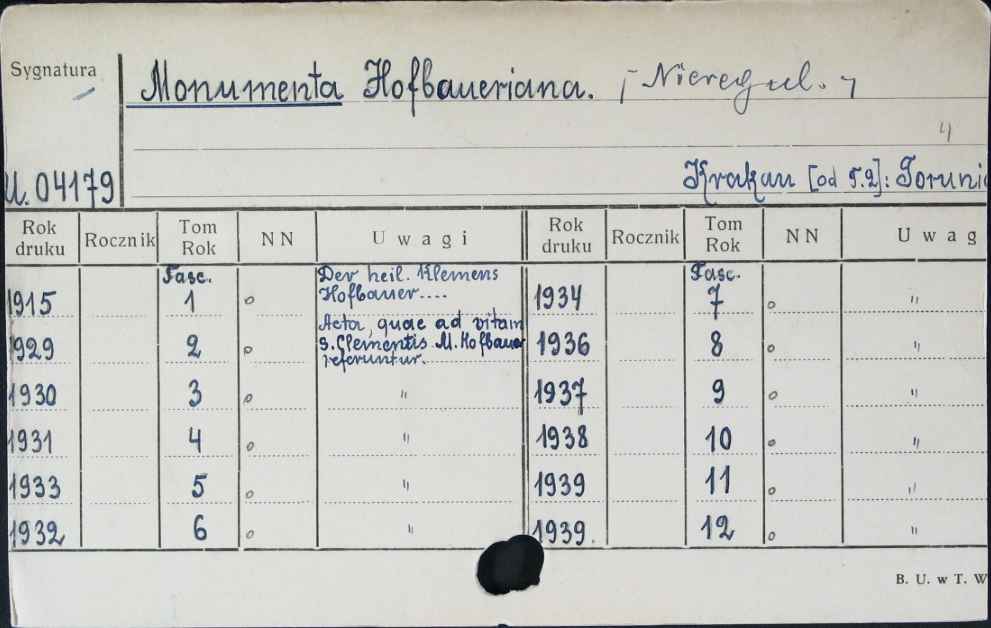 Sygnatura
Monumenta Hofbaueriana. [Nieregul.]
4
U. 04179
Krakau [od F.2]: Toruni
Rok druku Rocznik Tom Rok NN Uwagi Rok druku Rocznik Tom Rok NN Uwag
Fasc. Der heil. Klemens Fasc.
1915 1 o Hofbauer.... 1934 7 o "
Acta, quae ad vitam
1929 2 o S. Clementis M. Hofbauer 1936 8 o "
referuntur.
1930 3 o " 1937 9 o "
1931 4 o " 1938 10 o "
1933 5 o " 1939 11 o "
1932 6 o " 1939. 12 o "
B. U. w T. W